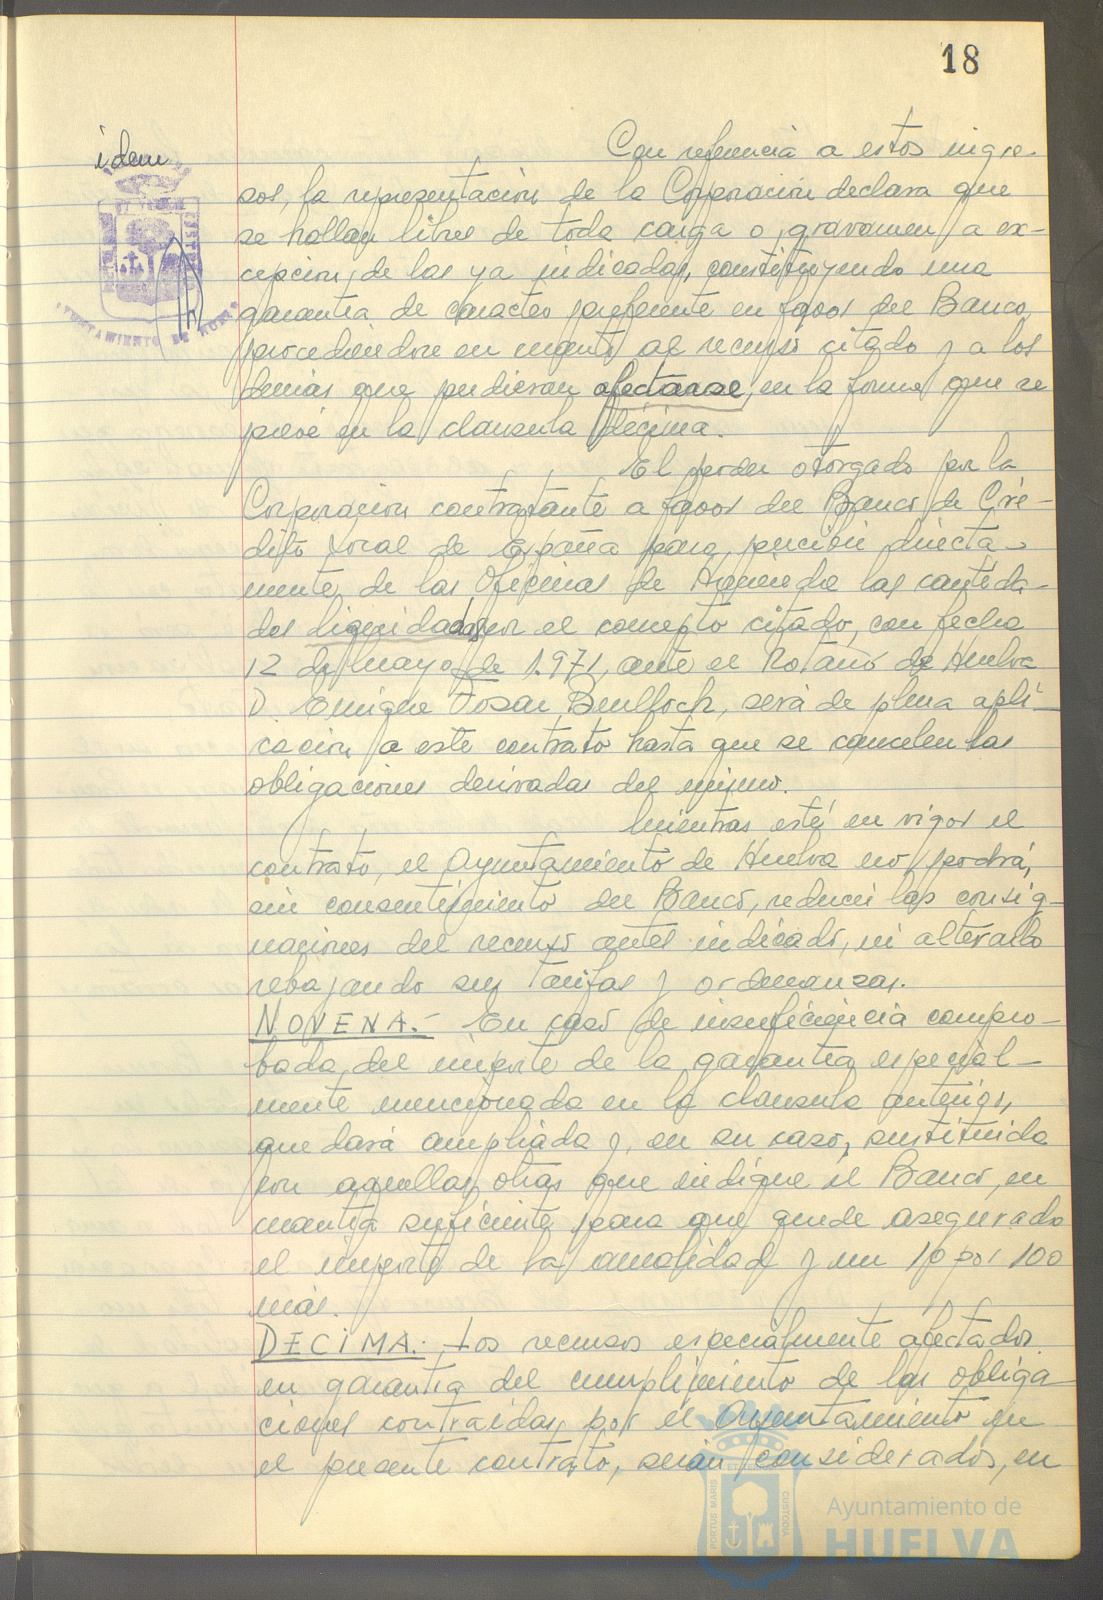 18
idem
Con referencia a estos ingre-
sos, la representación de la Corporación declara que
se hallan libres de toda carga o gravamen, a ex-
cepción, de las ya indicadas, constituyendo una
garantía de caracter preferente en favor del Banco,
procediéndose en cuanto al recurso citado y a los
demás que pudieran afectarse, en la forma que se
prevé en la clausula décima.
El poder otorgado por la
Corporación contratante a favor del Banco de Cré-
dito Local de España para percibir directa-
mente de las Oficinas de Hacienda las cantida-
des liquidadas por el concepto citado, con fecha
12 de mayo de 1.971, ante el Notario de Huelva
D. Enrique Tosar Benlloch, será de plena apli-
cación a este contrato hasta que se cancelen las
obligaciones derivadas del mismo.
Mientras esté en vigor el
contrato, el Ayuntamiento de Huelva no podrá,
sin consentimiento del Banco, reducir las consig-
naciones del recurso antes indicado, ni alterarlo
rebajando sus tarifas y ordenanzas.
NOVENA.- En caso de insuficiencia compro-
bada del importe de la garantía especial-
mente mencionada en la clausula anterior,
quedará ampliada y, en su caso, sustituida
con aquellas otras que indique el Banco, en
cuantía suficiente para que quede asegurado
el importe de la anualidad y un 10 por 100
más.
DECIMA.- Los recursos especialmente afectados
en garantía del cumplimiento de las obliga
ciones contraidas por el Ayuntamiento en
el presente contrato, serán considerados, en
PORTUS MARIS ET TERRAE CUSTODIA
Ayuntamiento de
HUELVA